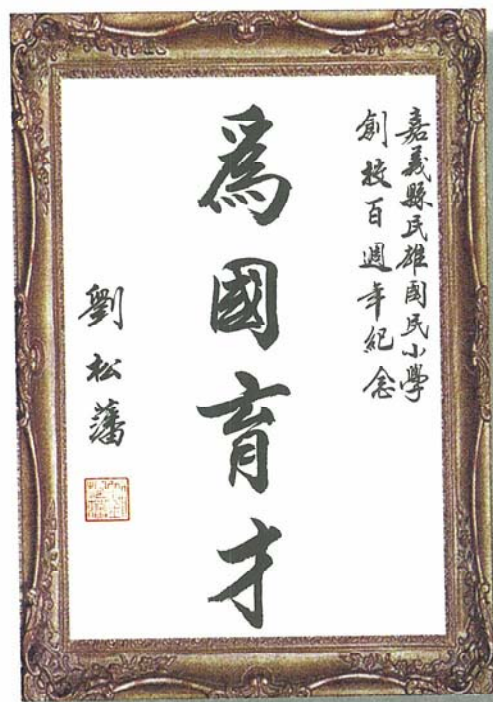 嘉義縣民雄國民小學
創校百週年紀念
為國育才
劉松藩